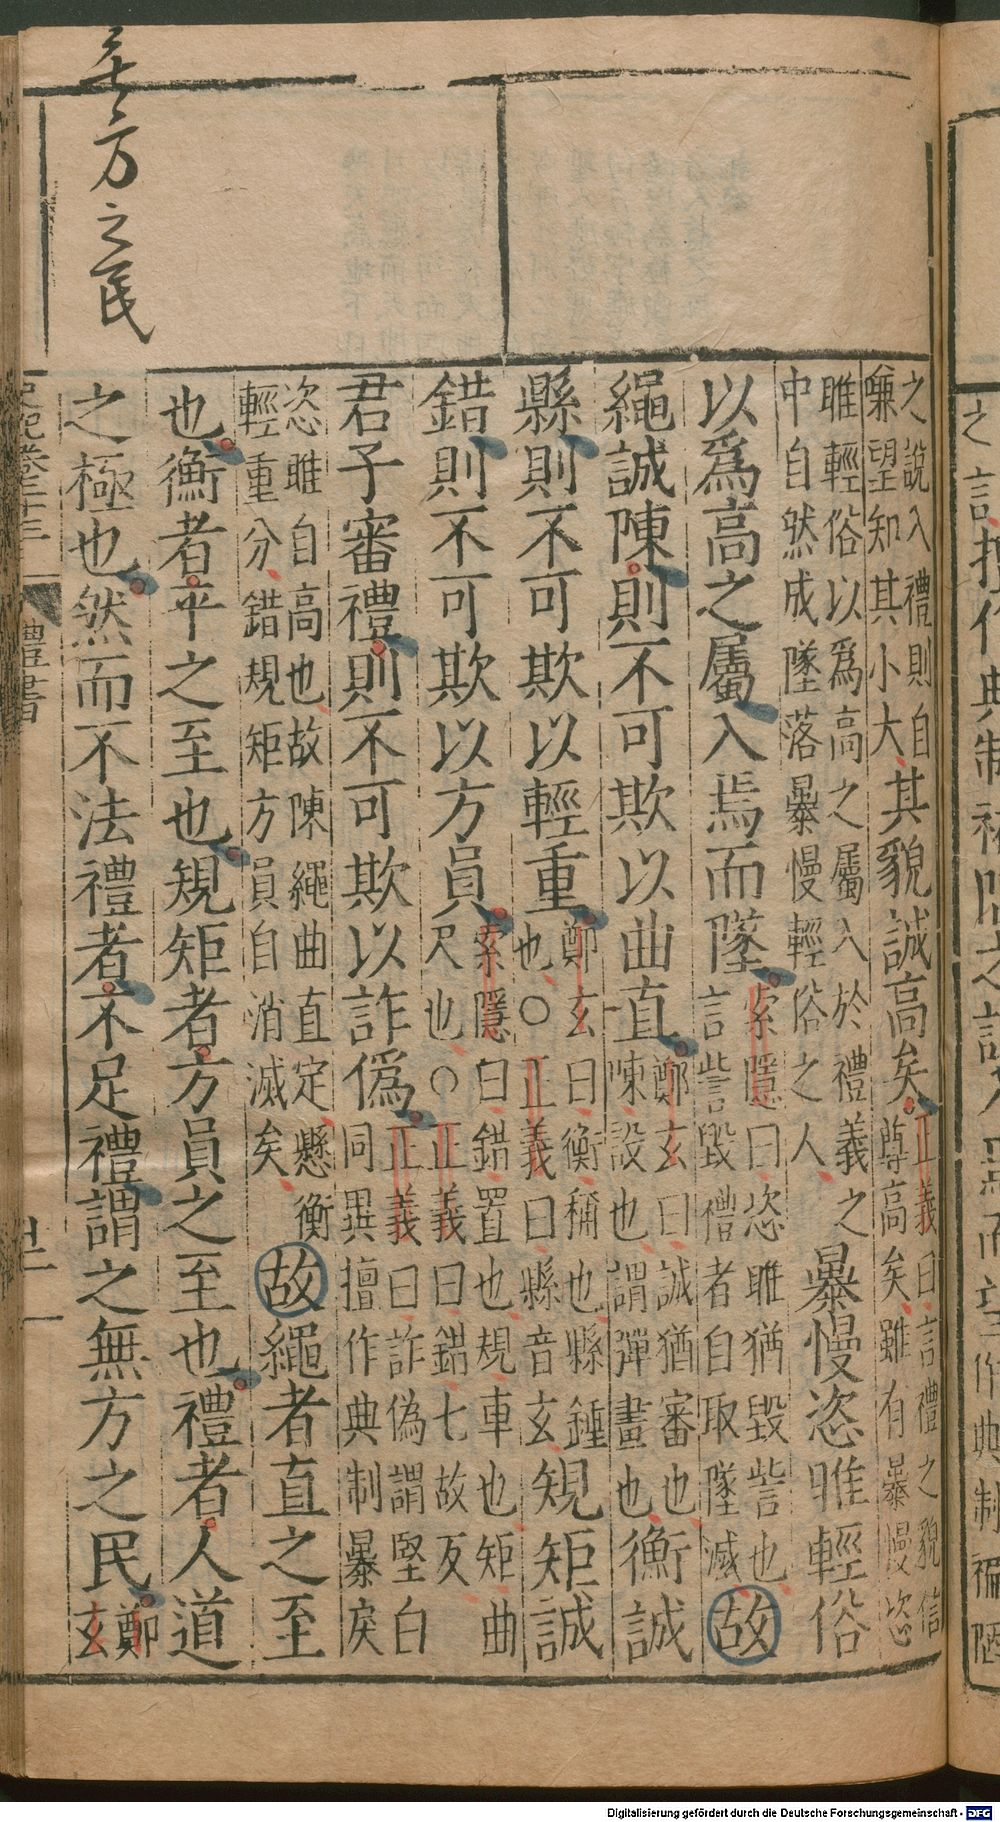 無方之民
之說入禮則自
嗛望知其小大其貌誠高矣正義曰言禮之貌信
尊高矣雖有暴慢恣
睢輕俗以爲高之屬入於禮義之
中自然成墜落暴慢輕俗之人暴慢恣睢輕俗
以爲高之屬入焉而墜索隱曰恣睢猶毀訾也
言訾毀禮者自取墜滅故
繩誠陳則不可欺以曲直鄭玄曰誠猶審也
陳設也謂彈畫也衡誠
縣則不可欺以輕重鄭玄曰衡稱也縣鍾
也○正義曰縣音玄規矩誠
錯則不可欺以方員索隱曰錯置也規車也矩曲
尺也○正義曰錯七故反
君子審禮則不可欺以詐僞正義曰詐偽謂堅白
同異擅作典制暴戾
恣睢自高也故陳繩曲直定懸衡
輕重分錯規矩方員自消滅矣故繩者直之至
也衡者平之至也規矩者方員之至也禮者人道
之極也然而不法禮者不足禮謂之無方之民鄭
玄
史記卷二十三 禮書
之 典制
作典制褊陋
Digitalisierung gefördert durch die Deutsche Forschungsgemeinschaft - DFG